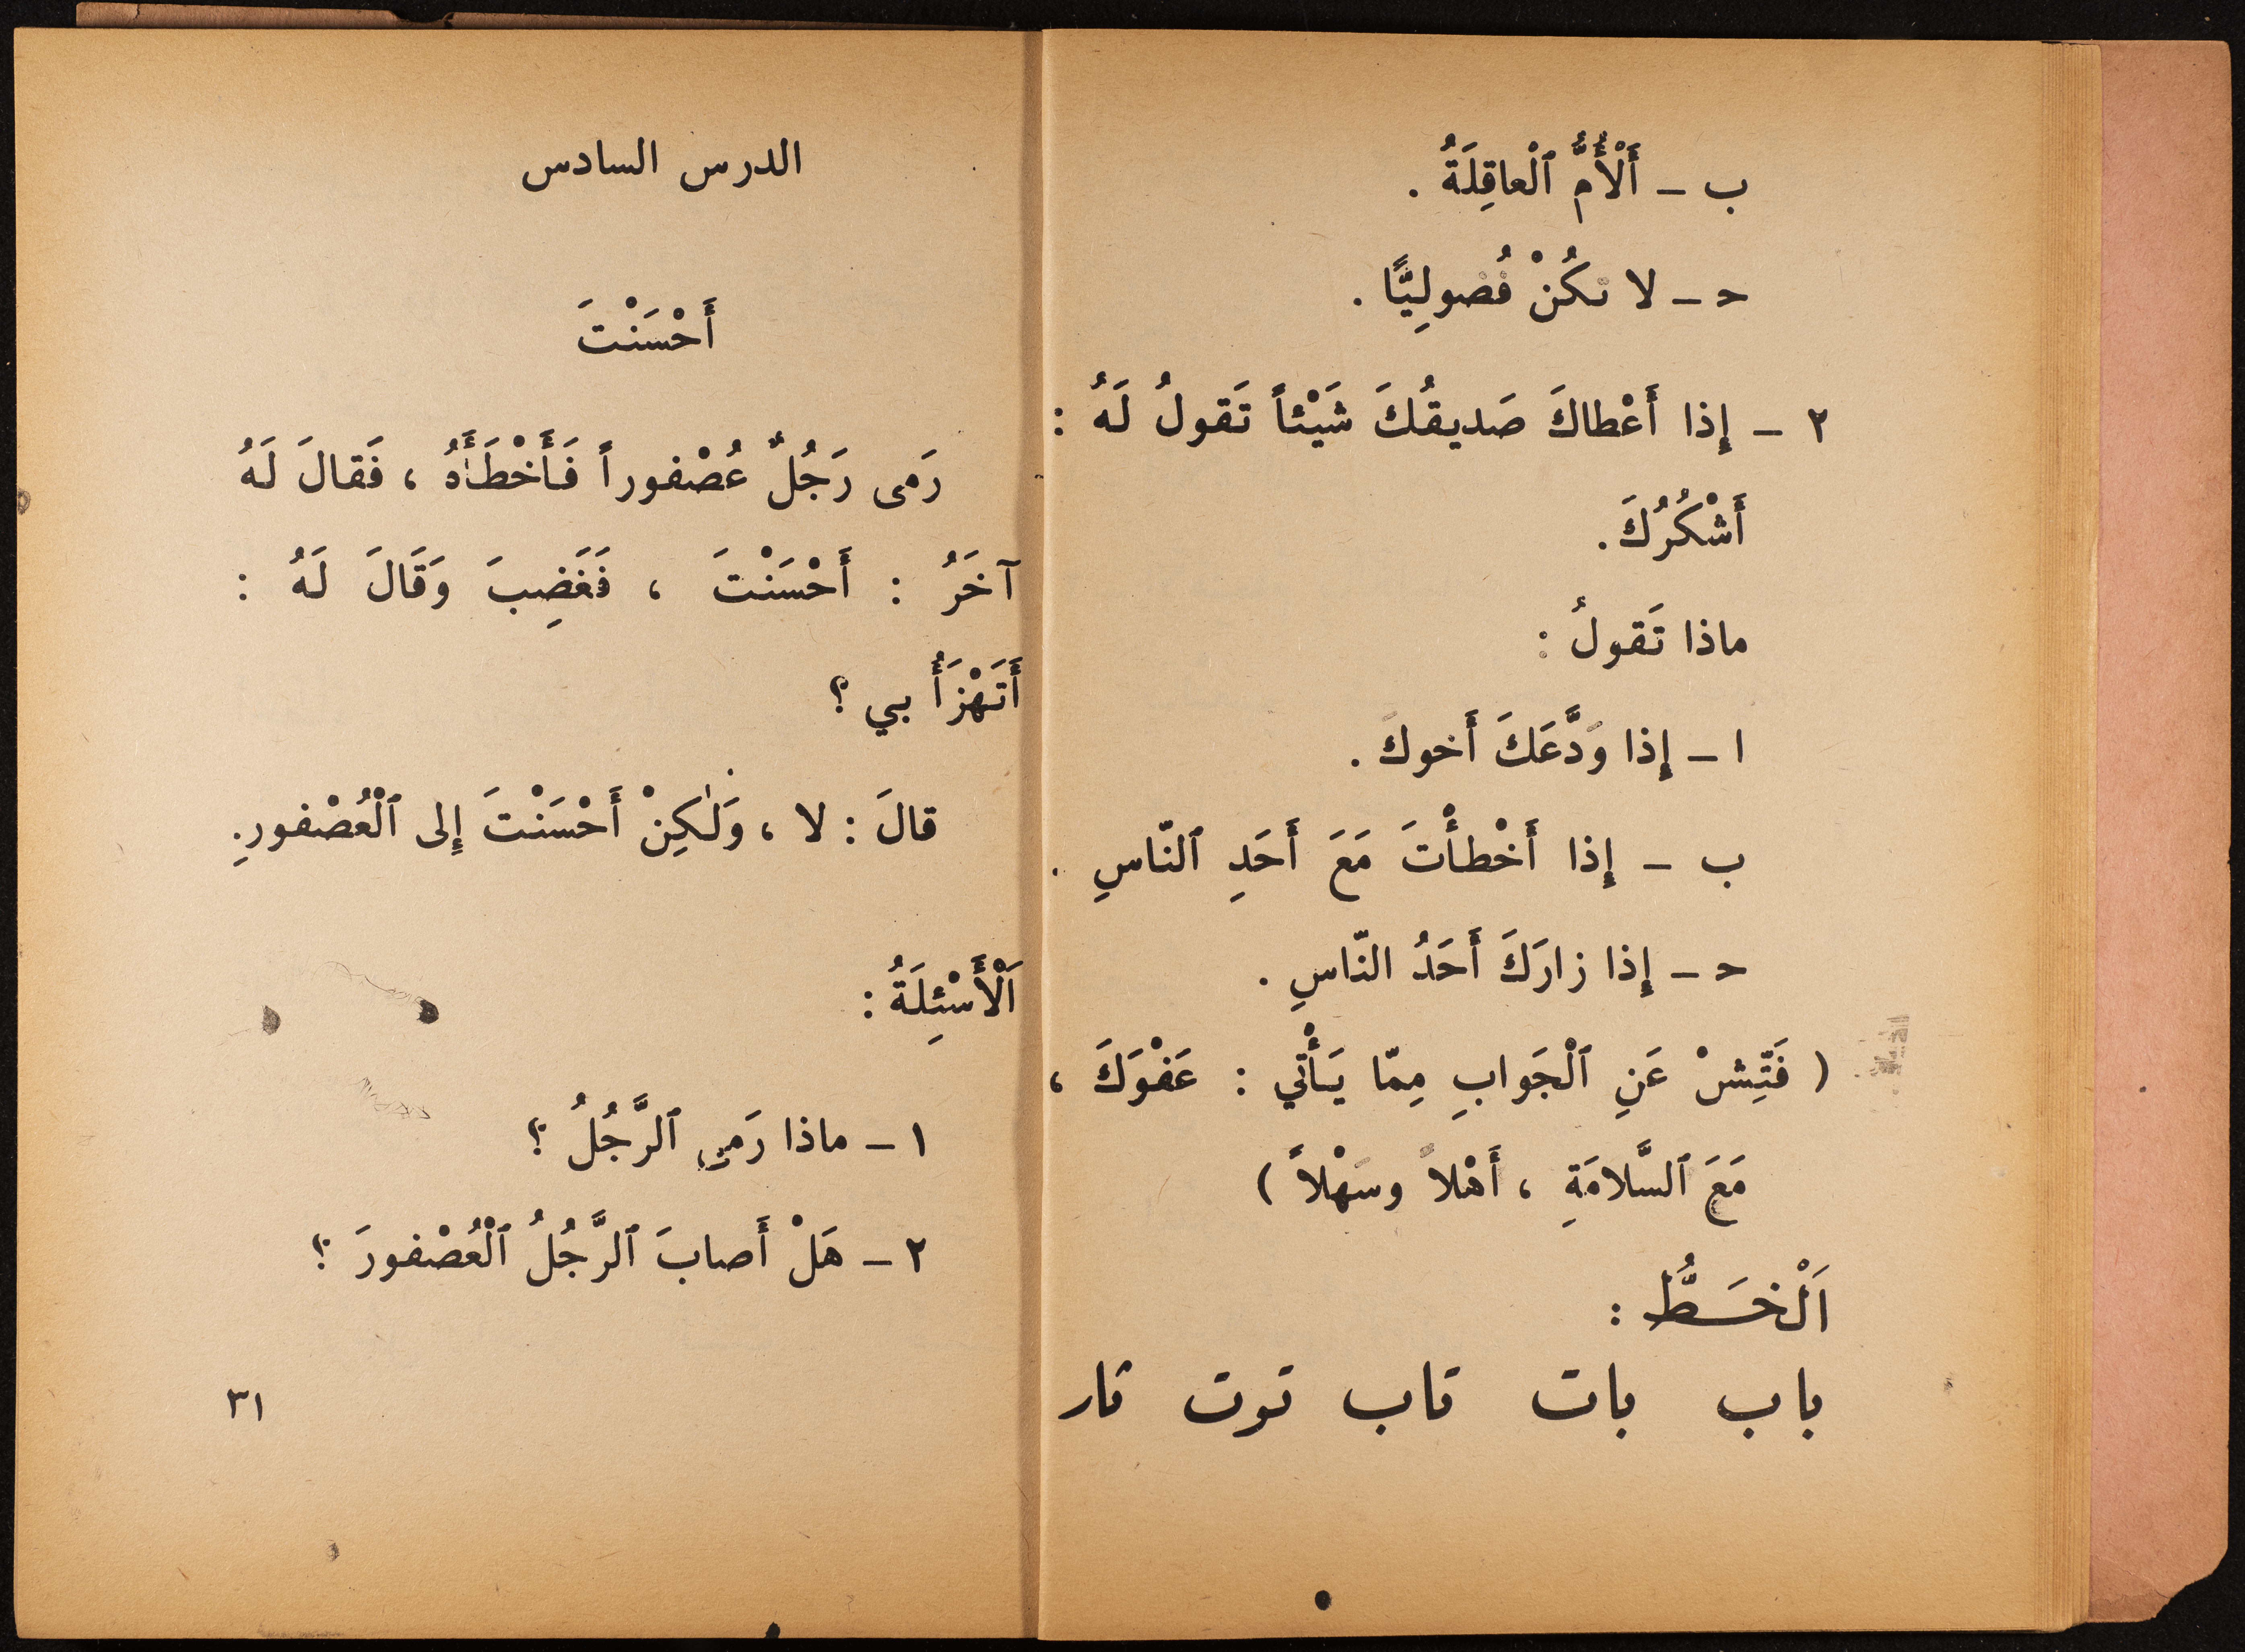 ب - أَلْأُمُّ ٱلْعاقِلَةُ .
حـ - لا تكُنْ فُضولِيًّا .
٢ - إِذا أَعْطاكَ صَديقُكَ شَيْئاً تَقولُ لَهُ :
أَشْكُرُكَ .
ماذا تَقولُ :
ا - إِذا وَدَّعَكَ أَخوكَ .
ب - إِذا أَخْطأْتَ مَعَ أَحَدِ ٱلنّاسِ .
حـ - إِذا زارَكَ أَحَدُ النّاسِ .
( فَتِّشْ عَنِ ٱلْجَوابِ مِمّا يَأْتي : عَفْوَكَ ،
مَعَ ٱلسَّلامَةِ ، أَهْلاً وسَهْلاً )
اَلْخَـطُّ :
باب بات تاب توت تار
الدرس السادس
أَحْسَنْتَ
رَمى رَجُلٌ عُصْفوراً فَأَخْطَأَهُ ، فَقالَ لَهُ
آخَرُ : أَحْسَنْتَ ، فَغَضِبَ وَقَالَ لَهُ :
أَتَهْزَأُ بي ؟
قالَ : لا ، وَلٰكِنْ أَحْسَنْتَ إِلى ٱلْعُصْفورِ .
اَلْأَسْئِلَةُ :
١ - ماذا رَمى ٱلرَّجُلُ ؟
٢ - هَلْ أَصابَ ٱلرَّجُلُ ٱلْعُصْفورَ ؟
٣١